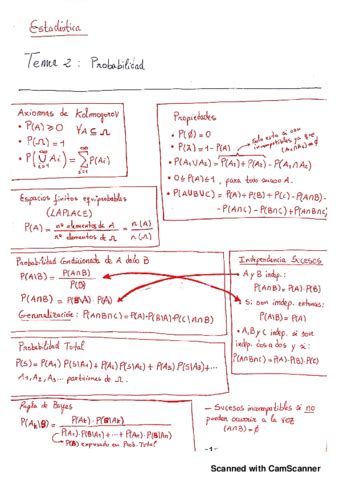 Estadística
Tema 2: Probabilidad
Axiomas de Kolmogorov
• P(A) ≥ 0 ∀A ⊆ Ω
• P(Ω) = 1
• P(⋃ Ai) = ∑ P(Ai)
Propiedades
• P(∅) = 0
• P(Ā) = 1 - P(A)
Solo esta si son incompatibles ya que (A₁∩A₂) = ∅
• P(A₁∪A₂) = P(A₁) + P(A₂) - P(A₁∩A₂)
• 0 ≤ P(A) ≤ 1, para todo suceso A.
• P(A∪B∪C) = P(A) + P(B) + P(C) - P(A∩B) -
- P(A∩C) - P(B∩C) + P(A∩B∩C)
Espacios finitos equiprobables
(LAPLACE)
P(A) = nº elementos de A / nº elementos de Ω = n(A) / n(Ω)
Probabilidad Condicionada de A dado B
P(A|B) = P(A∩B) / P(B)
P(A∩B) = P(B|A)·P(A)
Generalización: P(A∩B∩C) = P(A)·P(B|A)·P(C|A∩B)
Independencia Sucesos
• A y B indep.:
P(A∩B) = P(A)·P(B)
• Si son indep. entonces:
P(A|B) = P(A)
• A, B y C indep. si son
indep. dos a dos y si:
P(A∩B∩C) = P(A)·P(B)·P(C)
Probabilidad Total
P(S) = P(A₁) P(S|A₁) + P(A₂) P(S|A₂) + P(A₃) P(S|A₃) + ...
A₁, A₂, A₃... particiones de Ω.
Regla de Bayes
P(Ak|B) = P(Ak)·P(B|Ak) / P(A₁)·P(B|A₁) + ... + P(An)·P(B|An)
P(B) expresado en Prob. Total
— Sucesos incompatibles si no
pueden ocurrir a la vez
(A∩B) = ∅
-1-
Scanned with CamScanner